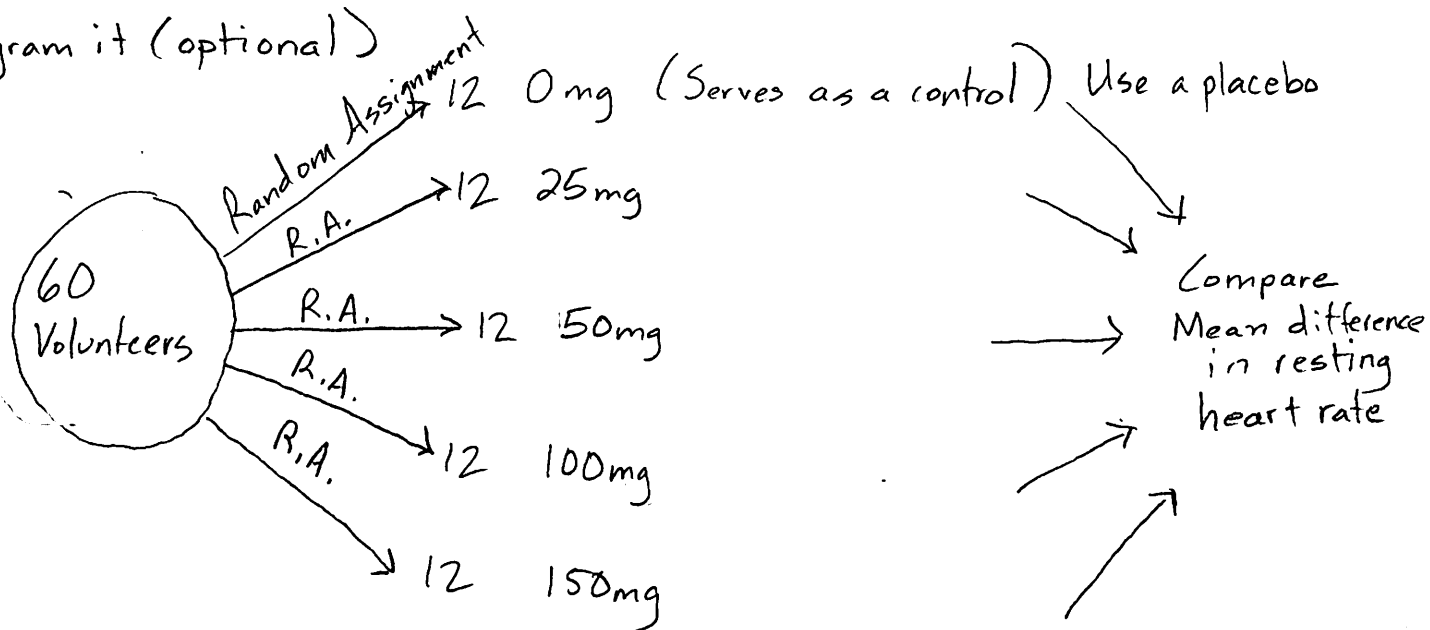 gram it (optional)
Random Assignment
12 0mg (Serves as a control) Use a placebo
R.A.
12 25mg
60
Volunteers
R.A.
12 50mg
R.A.
12 100mg
R.A.
12 150mg
Compare
Mean difference
in resting
heart rate